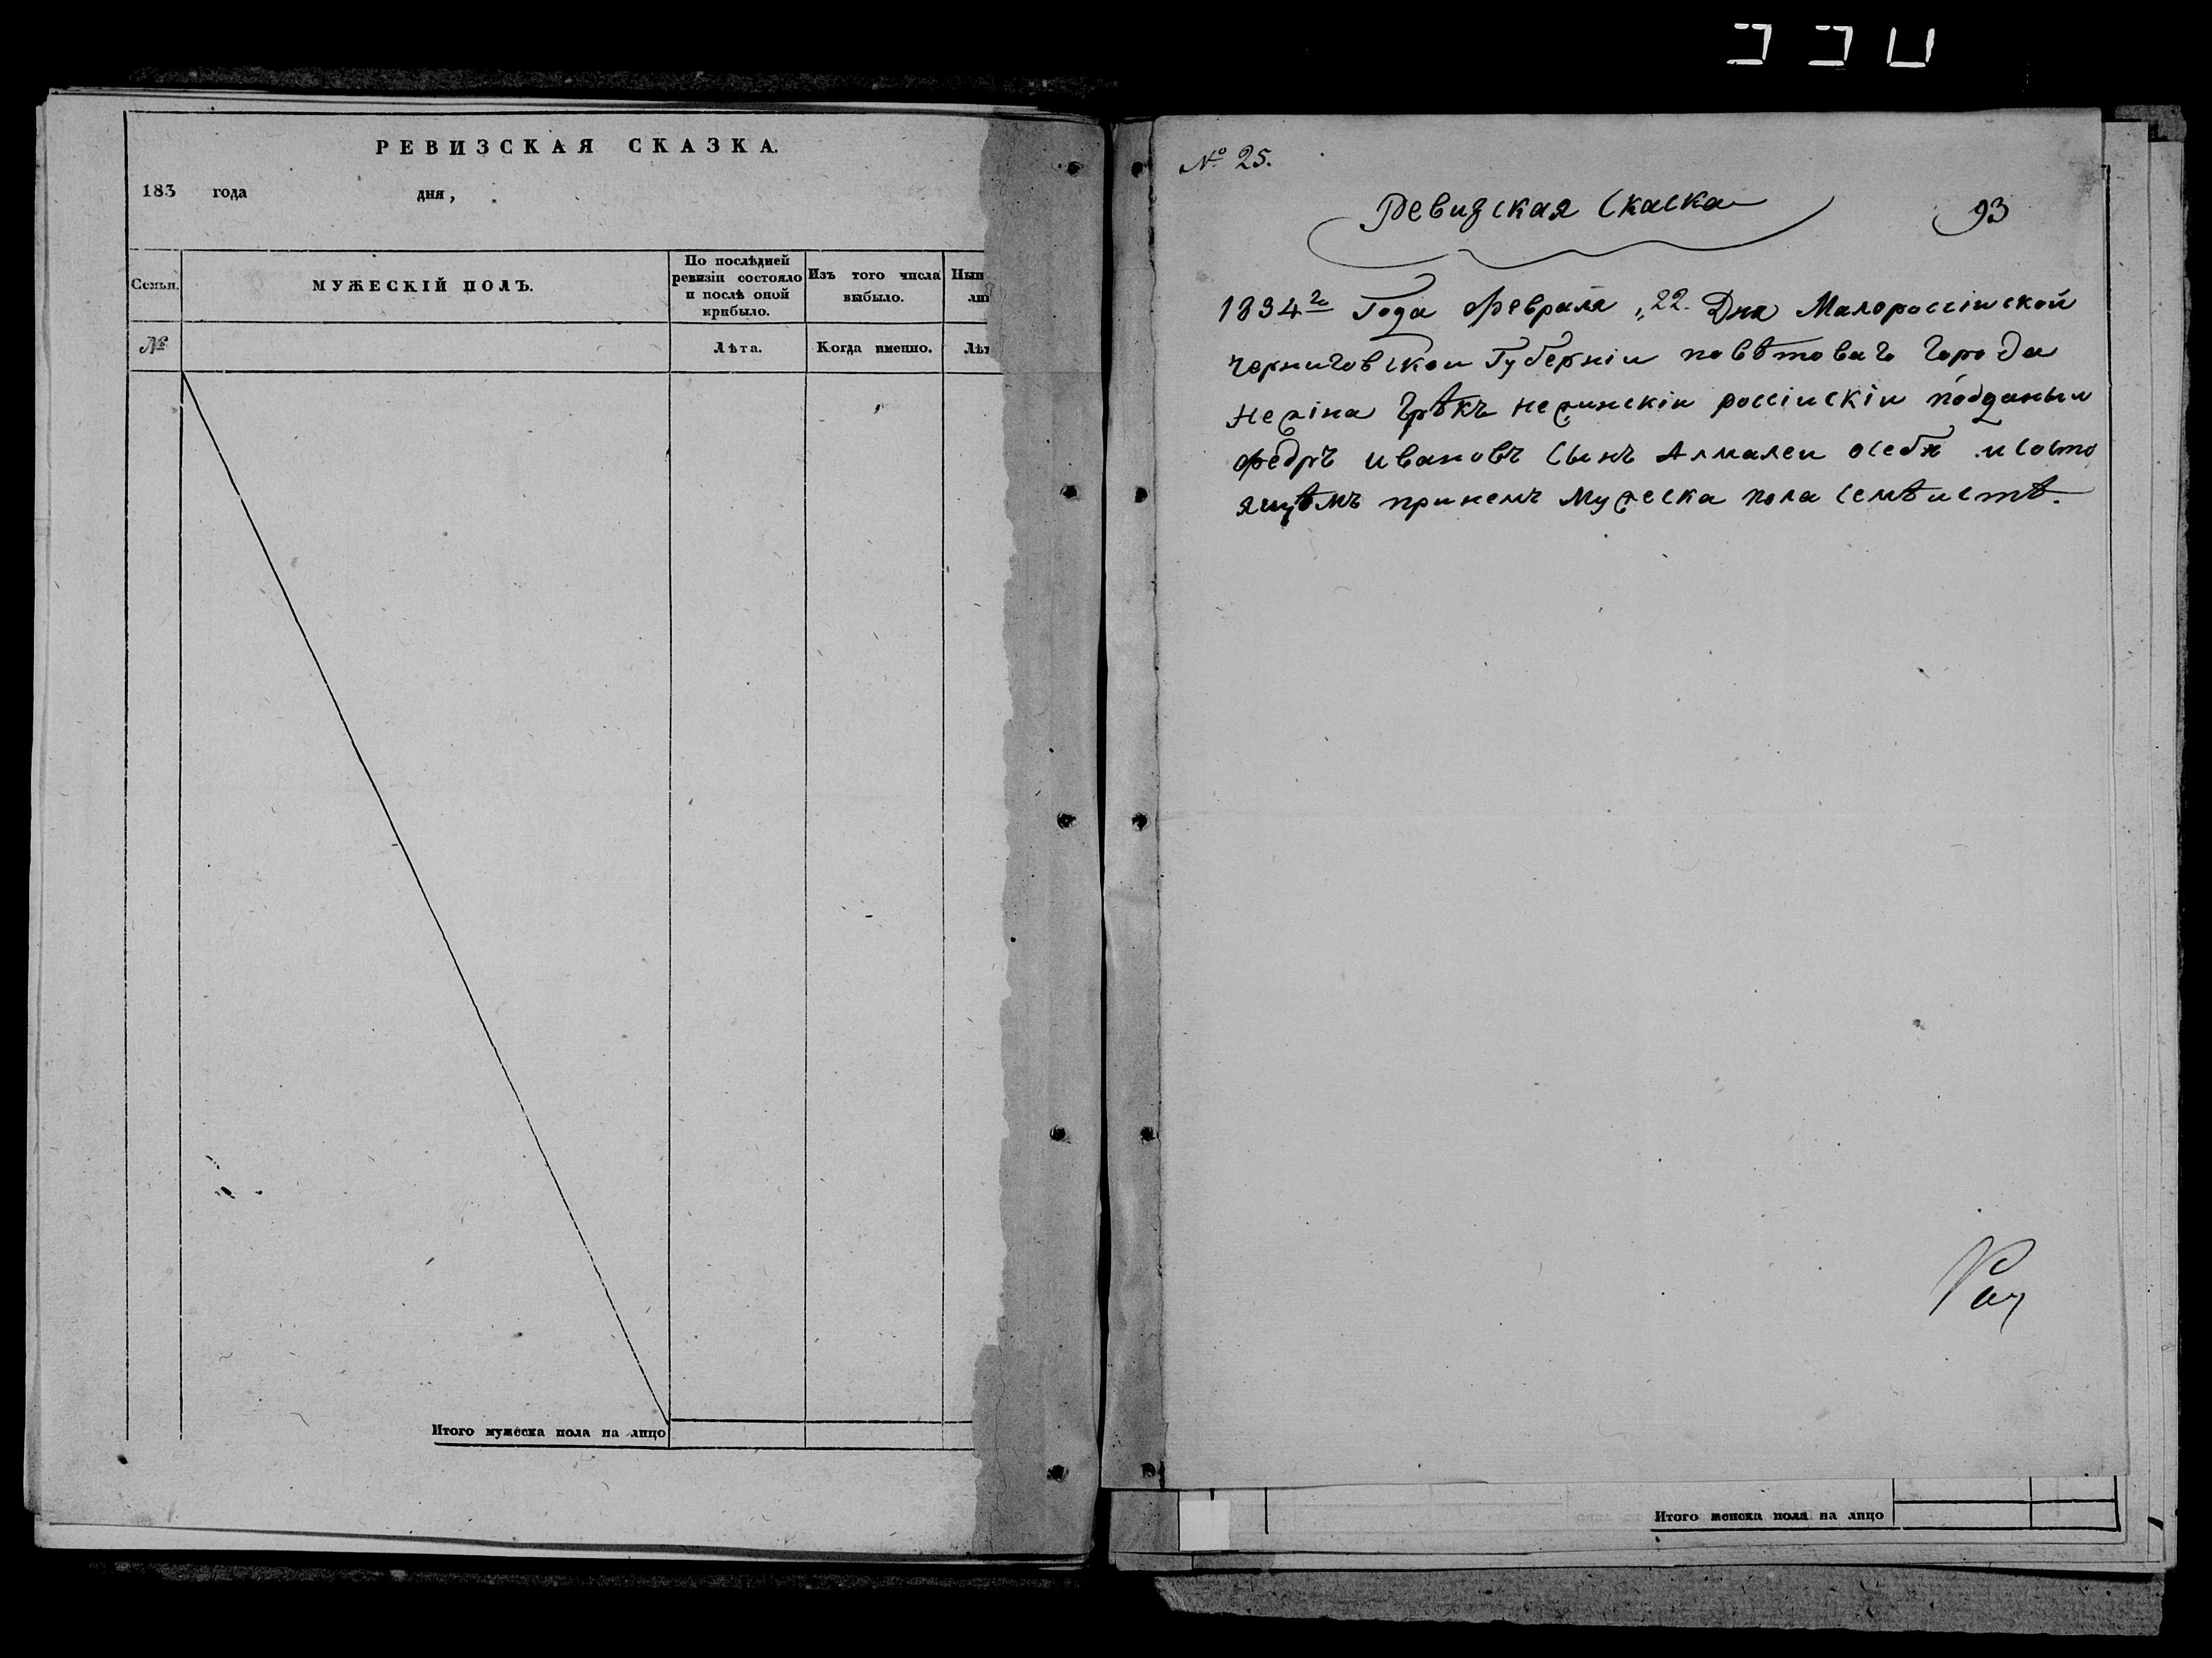 РЕВИЗСКАЯ СКАЗКА.
183 года дня,
Семьи. МУЖЕСКІЙ ПОЛЪ. По послѣдней ревизіи состояло и послѣ оной прибыло. Изъ того числа выбыло.
№ Лѣта. Когда именно.
Итого мужеска пола на лицо
№ 25.
Ревизская Скаска
93
1834го Года Февраля „22. Дня Малороссіиской
черниговскои Губерніи повѣтоваго Города
Нежина Грѣкъ нежинскіи россіискіи подданыи
Федръ ивановъ Сынъ Алмалеи осебѣ исосто
ящѣмъ принемъ Мужеска пола семѣистѣ.
Итого женска пола на лицо